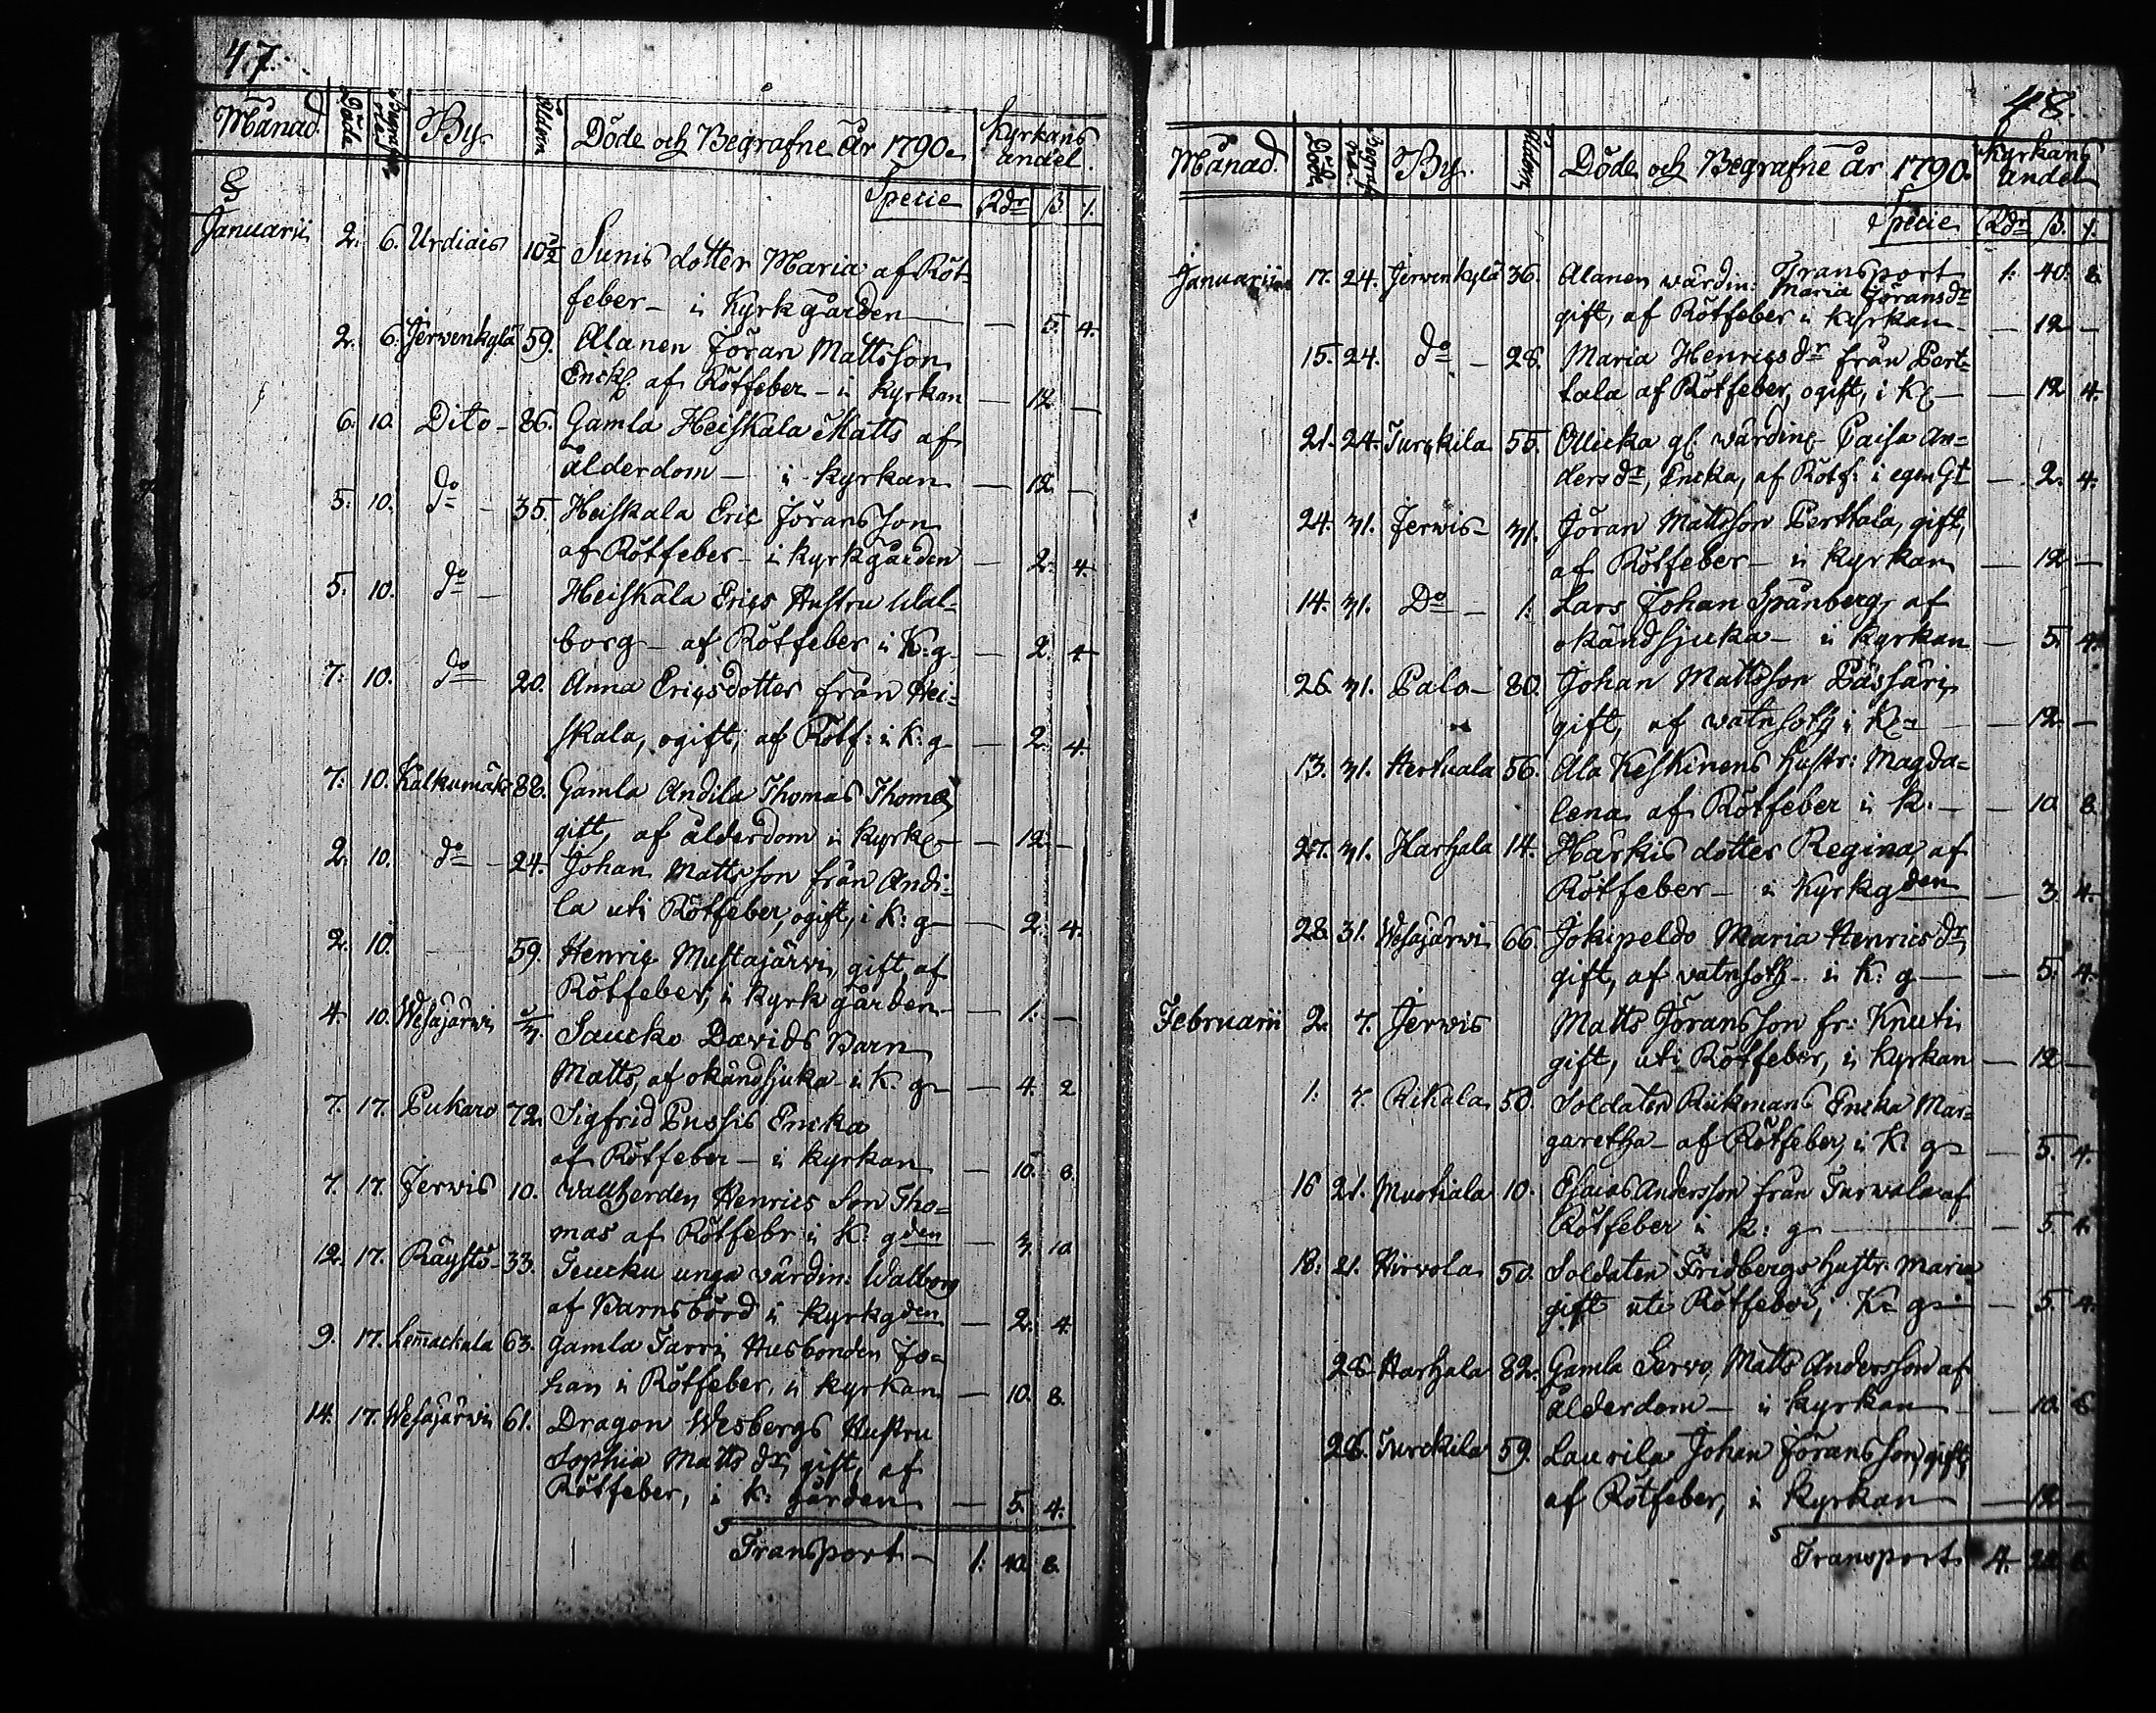 47.
Månad. Döde Begrafne By. Åldern Döde och Begrafne år 1790. Kyrkans andel
Specie Rdr ß. /.
Januarii 2. 6. Urdiais 10½ Sunis dotter Maria af Röt-
feber – i Kyrkgården — 5. 4.
2. 6. Jerwenkylä 59. Alanen Jöran Mattsson
Enckl. af Rötfeber – i kyrkan — 12 —
6. 10. Dito – 86. Gamla Heiskala Matts af
ålderdom — i kyrkan — 12 —
5. 10. do – 35. Heiskala Eric Jöransson
af Rötfeber – i kyrkgården — 2. 4.
5. 10. do – Heiskala Erics Hustru Wal-
borg – af Rötfeber i K:g — 2. 4
7. 10. do 20. Anna Ericsdotter från Hei-
skala, ogift, af Rötf: i K:g — 2. 4.
7. 10. Kalkumäki 88. Gamla Andila Thomas Thomæ
gift, af ålderdom i kyrk — 12. –
2. 10. do – 24. Johan Mattsson från Andi-
la uti Rötfeber, ogift, i K:g — 2. 4.
2. 10. 59. Henric Mustajärvi, gift, af
Rötfeber, i kyrkgården — 1. —
4. 10. Wesajärwi Saucko Davids Barn
Matts, af okänd sjuka i K. g — 4. 2
7. 17. Pukaro 72. Sigfrid Pussis Encka
af Rötfeber — i kyrkan — 10. 8.
7. 17. Jerwis 10. Vallherden Henrics Son Tho-
mas af Rötfebr i K: gden — 3. 10
12. 17. Räystö – 33. Teucku unga värdin: Walborg
af Barnsbörd i kyrkgden — 2. 4.
9. 17. Lemackala 63. Gamla Tarri Husbonden Jo-
han i Rötfeber, i kyrkan — 10. 8.
14. 17. Wesajärwi 61. Dragon Wesbergs Hustru
Sophia Matts dr, gift, af
Rötfeber, i K: gården — 5. 4.
Transport – 1. 40. 8.
48.
Månad. Döde Begrafne By. Åldern Döde och Begrafne år 1790. Kyrkans andel
Specie Rdr ß. /.
Transport 1. 40. 8.
Januarii 17. 24. Jerwenkylä 36. Alanen värdin: Maria Jörans dr
gift, af Rötfeber i kyrkan — 12 –
15. 24. do – 28. Maria Henrics dr från Pert-
tala af Rötfeber, ogift, i K — 12 4.
21. 24. Turckila 55. Ollicka gl. värdin Caisa An-
ders dr, Encka, af Rötf: i egen Gt — 2. 4.
24. 31. Jerwis – 31. Jöran Mattsson Perttala, gift,
af Rötfeber – i kyrkan — 12 –
14. 31. Do – 1. Lars Johan Spånberg, af
okänd sjuka – i kyrkan — 5. 4.
26. 31. Palo – 80. Johan Mattsson Pässäri,
gift, af vatnsoth i K — 12. –
13. 31. Hertuala 56. Ala Keskinens Hustr: Magda-
lena af Rötfeber i K. — 10 8
27. 31. Harhala 14. Härkis dotter Regina, af
Rötfeber – i Kyrkgden — 3. 4.
28. 31. Wesajärwi 66. Jokipeldo Maria Henrics dr,
gift, af vatnsoth – i K: g — 5. 4.
Februarii 2. 7. Jerwis Matts Jöransson fr: Knuti
gift, uti Rötfeber, i kyrkan — 12 –
1. 7. Rikala 50. Soldaten Rickmans Encka Mar-
garetha – af Rötfeber, i K: g — 5. 4.
16 21. Mustiala 10. Esaias Andersson från Turvala af
Rötfeber i K: g — 5. 4.
18. 21. Hirvola 50. Soldaten Fridbergs Hustr: Maria
gift uti Rötfeber, K: g — 5. 4.
28. Harhala 82. Gamla Servo, Matts Andersson af
ålderdom — i kyrkan — 10. 8
28. Turckila 59. Laurila Johan Jöransson, gift,
af Rötfeber, i kyrkan — 12 —
Transport 4.